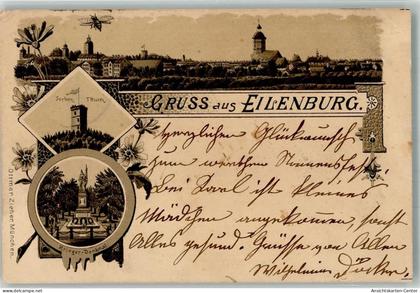 GRUSS aus EILENBURG.
Sorben Thurm.
Krieger-Denkmal
Ottmar Zieher München.
herzlichen Glückwunsch
zum werthen Namensfeste.
Bei Paul ist kleines
Mädchen angekommen sonst
Alles gesund. Grüsse von Allen
Wilhelmine
Ansichtskarten-Center